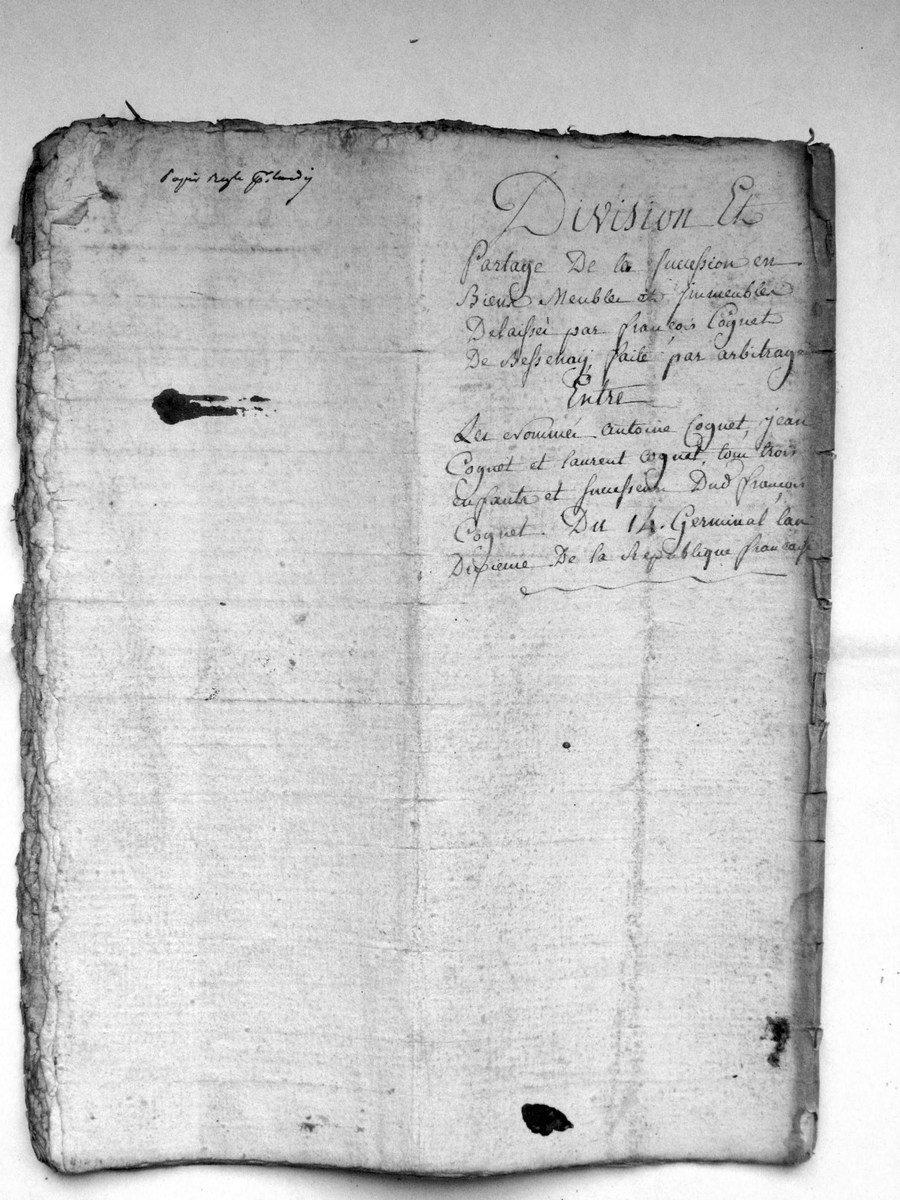 Division Et
Partage De la succession en
Bieux Meubles et Immeubles
Delaissés par françois Cognet
De Bessenay, faite par arbitrage
Entre
Les nommés antoine Cognet, jean
Cognet et laurent Cognet, tous trois
enfants et successeurs Dud françois
Cognet. Du 14. Germinal lan
Dixieme De la Republique francaise